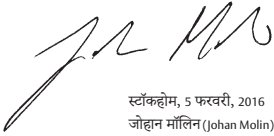 स्टॉकहोम, 5 फरवरी, 2016
जोहान मॉलिन (Johan Molin)